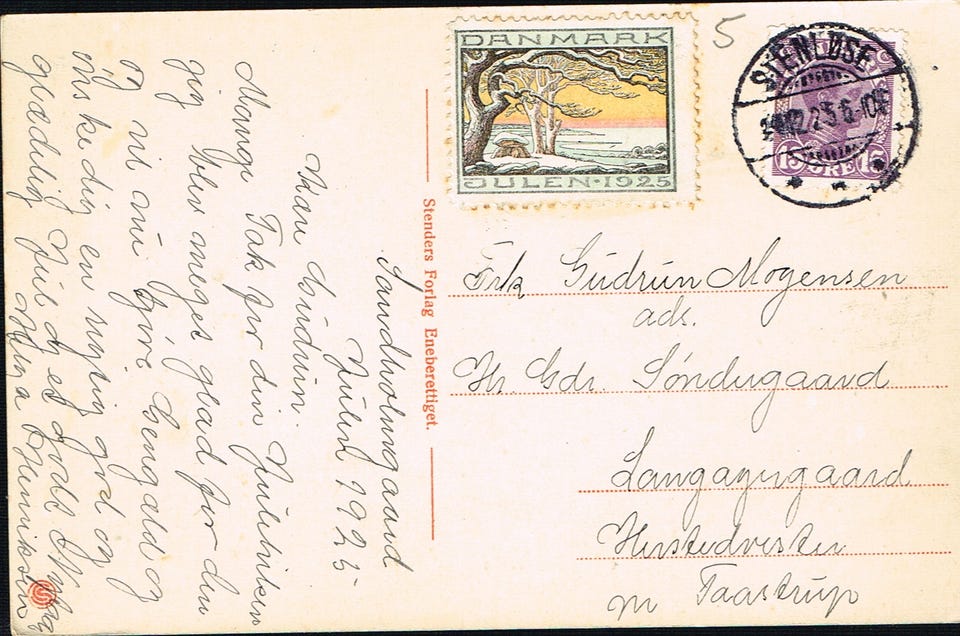 Sandholmgaard
Julen 1925
Kære Gudrun.
Mange Tak for din Julehilsen
jeg blev meget glad for den
og vil nu have Gengæld og
ønske dig en rigtig god og
glædelig Jul og et godt Nytaar
Henriksen
Stenders Forlag Eneberettiget.
DANMARK
JULEN·1925
5
STENLØSE
24.12.25 6-10E
15 ØRE 15
Frk Gudrun Mogensen
ads.
Hr. Gdr. Søndergaard
Langagergaard
Herstedvester
pr Taastrup